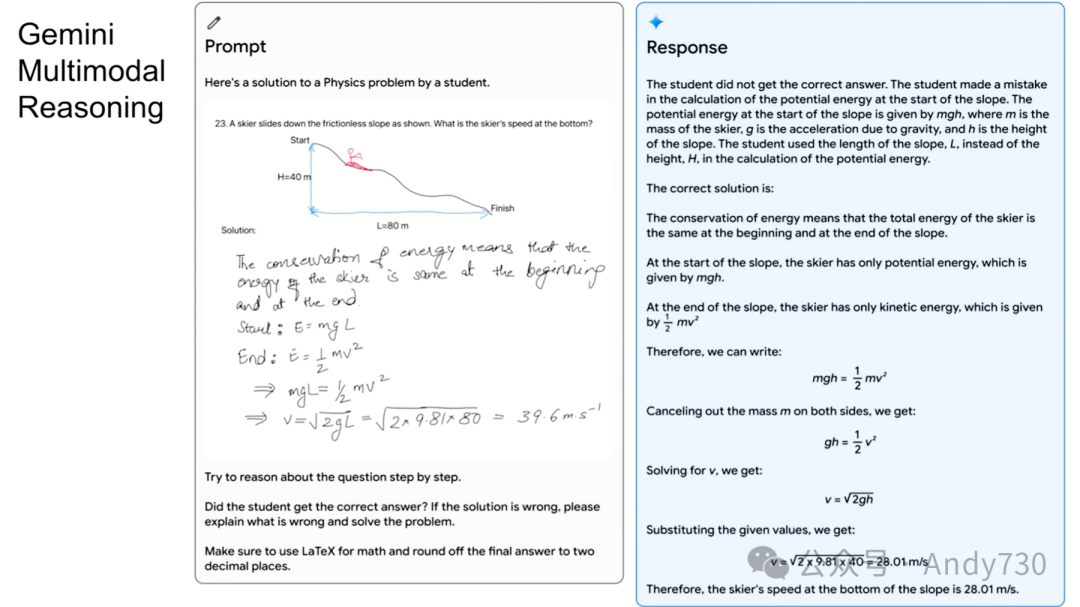 Gemini
Multimodal
Reasoning
Prompt
Here's a solution to a Physics problem by a student.
23. A skier slides down the frictionless slope as shown. What is the skier's speed at the bottom?
Start
H=40 m
Finish
L=80 m
Solution:
The conservation of energy means that the
energy of the skier is same at the beginning
and at the end.
Start : E = mgL
End : E = 1/2 mv²
⇒ mgL = 1/2 mv²
⇒ v = √2gL = √2×9.81×80 = 39.6 m s⁻¹
Try to reason about the question step by step.
Did the student get the correct answer? If the solution is wrong, please
explain what is wrong and solve the problem.
Make sure to use LaTeX for math and round off the final answer to two
decimal places.
Response
The student did not get the correct answer. The student made a mistake
in the calculation of the potential energy at the start of the slope. The
potential energy at the start of the slope is given by mgh, where m is the
mass of the skier, g is the acceleration due to gravity, and h is the height
of the slope. The student used the length of the slope, L, instead of the
height, H, in the calculation of the potential energy.
The correct solution is:
The conservation of energy means that the total energy of the skier is
the same at the beginning and at the end of the slope.
At the start of the slope, the skier has only potential energy, which is
given by mgh.
At the end of the slope, the skier has only kinetic energy, which is given
by 1/2 mv²
Therefore, we can write:
mgh = 1/2 mv²
Canceling out the mass m on both sides, we get:
gh = 1/2 v²
Solving for v, we get:
v = √2gh
Substituting the given values, we get:
v = √2 x 9.81 x 40 = 28.01 m/s
公众号 · Andy730
Therefore, the skier's speed at the bottom of the slope is 28.01 m/s.